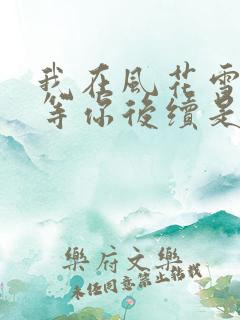 我在風花雪
等你後續是
樂府文樂
未經同意禁止轉載